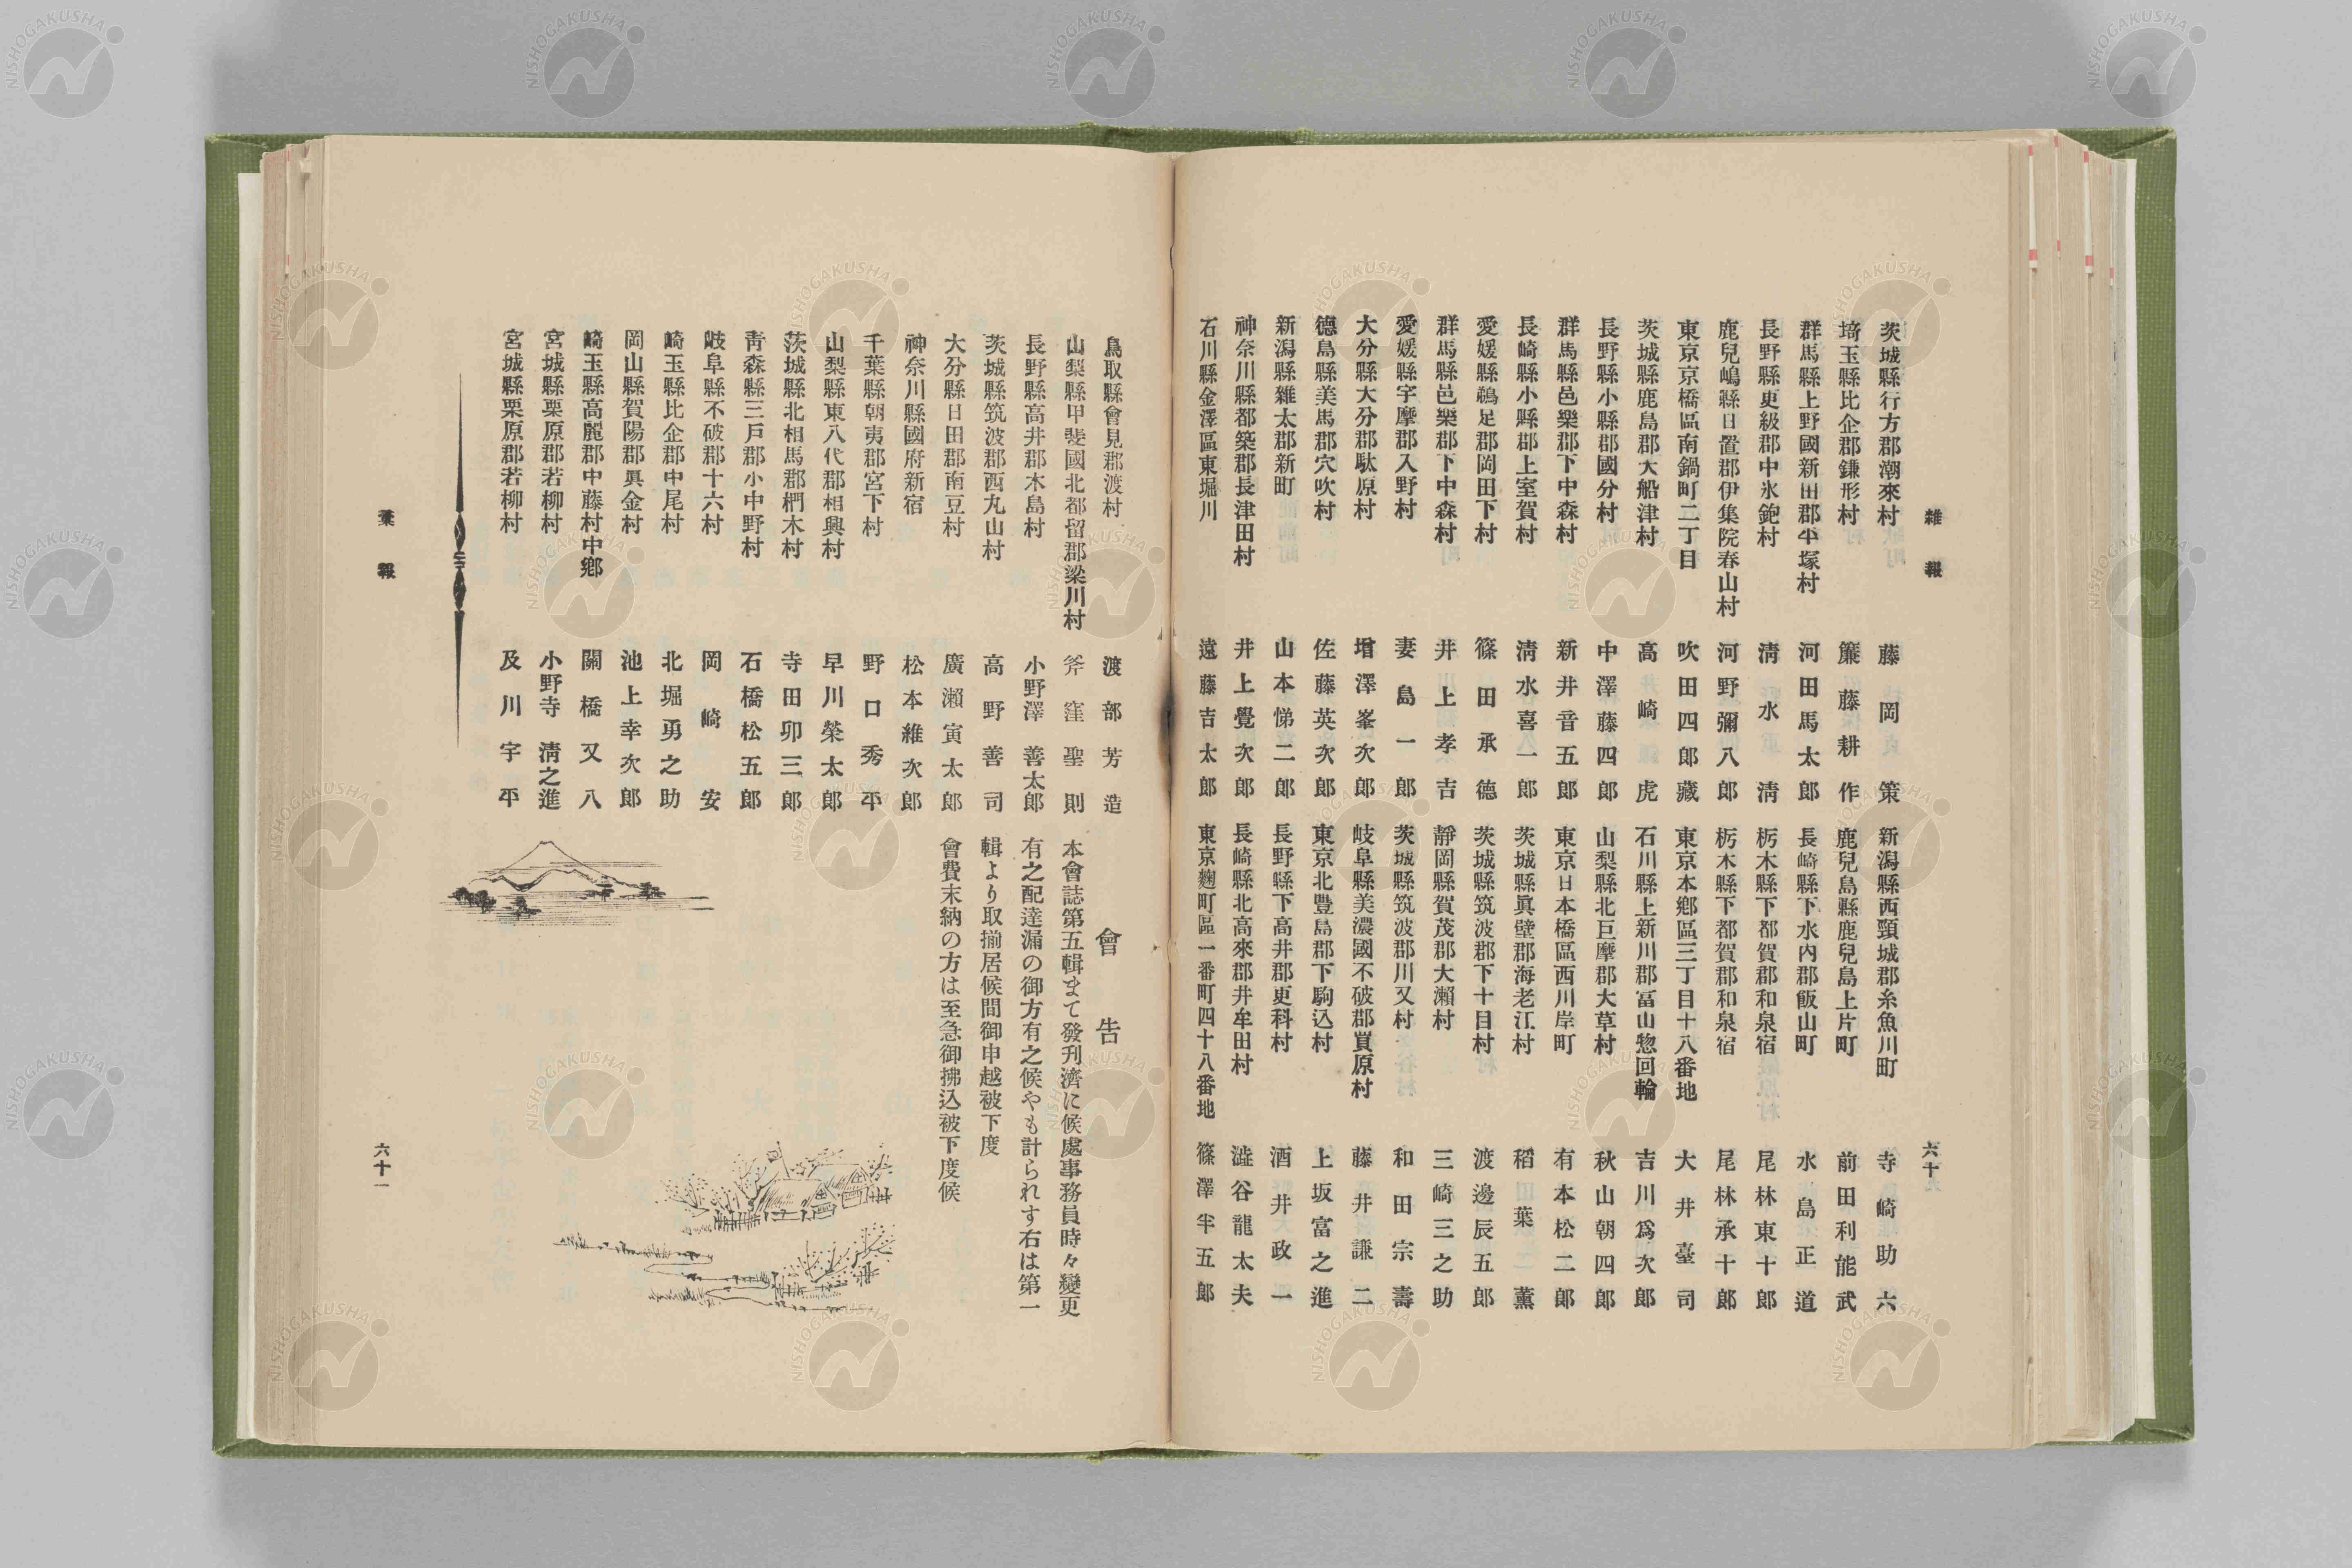 雜報
六十
茨城縣行方郡潮來村 藤岡策
埼玉縣比企郡鎌形村 簾藤耕作
群馬縣上野國新田郡平塚村 河田馬太郎
長野縣更級郡中氷鉋村 淸水淸
鹿兒嶋縣日置郡伊集院春山村 河野彌八郎
東京京橋區南鍋町二丁目 吹田四郎藏
茨城縣鹿島郡大船津村 高崎虎
長野縣小縣郡國分村 中澤藤四郎
群馬縣邑樂郡下中森村 新井音五郎
長崎縣小縣郡上室賀村 淸水喜一郎
愛媛縣鵜足郡岡田下村 篠田承德
群馬縣邑樂郡下中森村 井上孝吉
愛媛縣宇摩郡入野村 妻島一郎
大分縣大分郡駄原村 增澤峯次郎
德島縣美馬郡穴吹村 佐藤英次郎
新潟縣雜太郡新町 山本悌二郎
神奈川縣都築郡長津田村 井上覺次郎
石川縣金澤區東堀川 遠藤吉太郎
新潟縣西頸城郡糸魚川町 寺崎助六
鹿兒島縣鹿兒島上片町 前田利能武
長崎縣下水内郡飯山町 水島正道
栃木縣下都賀郡和泉宿 尾林東十郎
栃木縣下都賀郡和泉宿 尾林承十郎
東京本鄕區三丁目十八番地 大井臺司
石川縣上新川郡富山惣回輪 吉川爲次郎
山梨縣北巨摩郡大草村 秋山朝四郎
東京日本橋區西川岸町 有本松二郎
茨城縣眞壁郡海老江村 稻葉一薰
茨城縣筑波郡下十目村 渡邊辰五郎
靜岡縣賀茂郡大瀨村 三崎三之助
茨城縣筑波郡川又村 和田宗壽
岐阜縣美濃國不破郡室原村 藤井謙二
東京北豐島郡下駒込村 上坂富之進
長野縣下高井郡更科村 酒井政一
長崎縣北高來郡井牟田村 澁谷龍太夫
東京麴町區一番町四十八番地 篠澤半五郎
鳥取縣會見郡渡村 渡部芳造
山梨縣甲斐國北都留郡梁川村 斧窪聖則
長野縣高井郡木島村 小野澤善太郎
茨城縣筑波郡西丸山村 高野善司
大分縣日田郡南豆村 廣瀨寅太郎
神奈川縣國府新宿 松本維次郎
千葉縣朝夷郡宮下村 野口秀平
山梨縣東八代郡相興村 早川榮太郎
茨城縣北相馬郡椚木村 寺田卯三郎
靑森縣三戸郡小中野村 石橋松五郎
岐阜縣不破郡十六村 岡崎安
崎玉縣比企郡中尾村 北堀勇之助
岡山縣賀陽郡眞金村 池上幸次郎
崎玉縣高麗郡中藤村中鄕 關橋又八
宮城縣栗原郡若柳村 小野寺淸之進
宮城縣栗原郡若柳村 及川宇平
會告
本會誌第五輯まて發刊濟に候處事務員時々變更
有之配達漏の御方有之候やも計られす右は第一
輯より取揃居候間御申越被下度
會費末納の方は至急御拂込被下度候
彙報
六十一
NISHOGAKUSHA